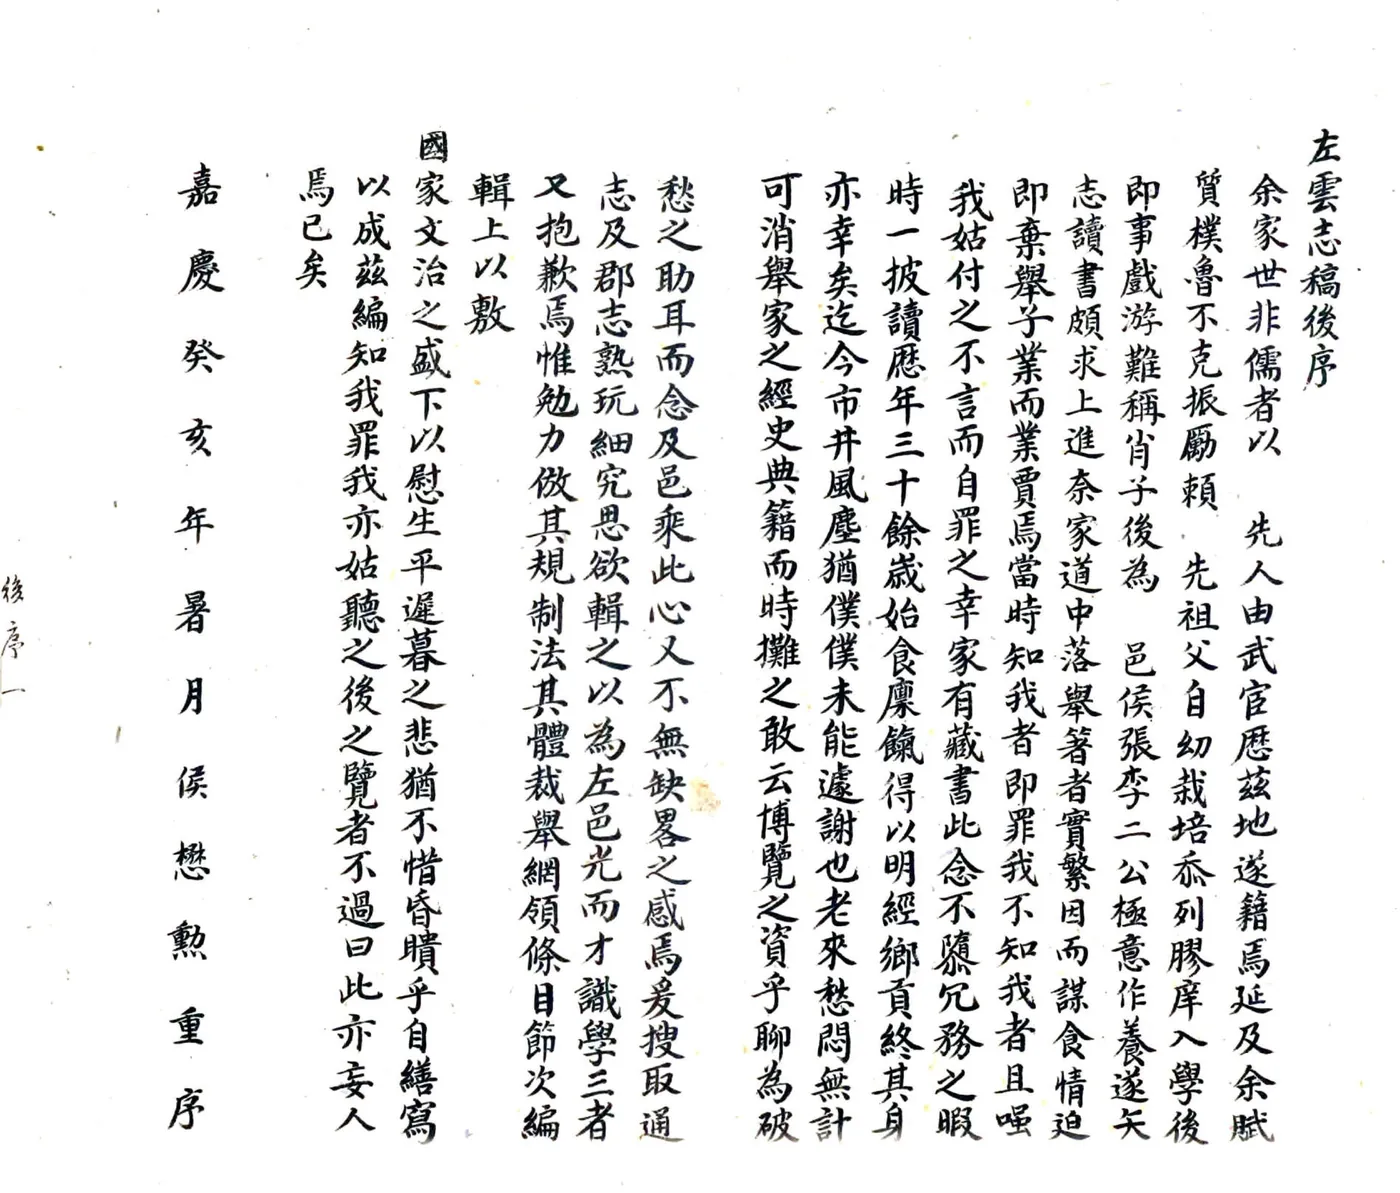 左雲志稿後序
余家世非儒者以 先人由武宦歷茲地遂籍焉延及余賦
質樸魯不克振勵賴 先祖父自幼栽培忝列膠庠入學後
即事戲游難稱肖子後為 邑侯張李二公極意作養遂矢
志讀書頗求上進奈家道中落舉箸者實繁因而謀食情迫
即棄舉子業而業賈焉當時知我者即罪我不知我者且嗤
我姑付之不言而自罪之幸家有藏書此念不隳冗務之暇
時一披讀歷年三十餘歲始食廩餼得以明經鄉貢終其身
亦幸矣迄今市井風塵猶僕僕未能遽謝也老來愁悶無計
可消舉家之經史典籍而時攤之敢云博覽之資乎聊為破
愁之助耳而念及邑乘此心又不無缺畧之感焉爰搜取通
志及郡志熟玩細究思欲輯之以為左邑光而才識學三者
又抱歉焉惟勉力倣其規制法其體裁舉網領條目節次編
輯上以敷
國家文治之盛下以慰生平遲暮之悲猶不惜昏瞶乎自繕寫
以成茲編知我罪我亦姑聽之後之覽者不過曰此亦妄人
焉已矣
嘉慶癸亥年暑月侯懋勲重序
後序一